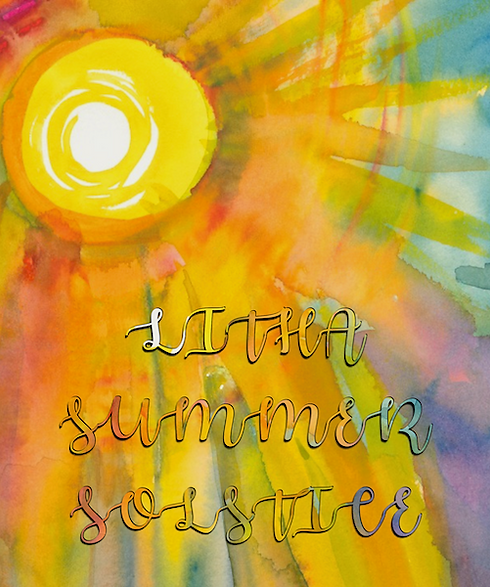 LITHA
SUMMER
SOLSTICE